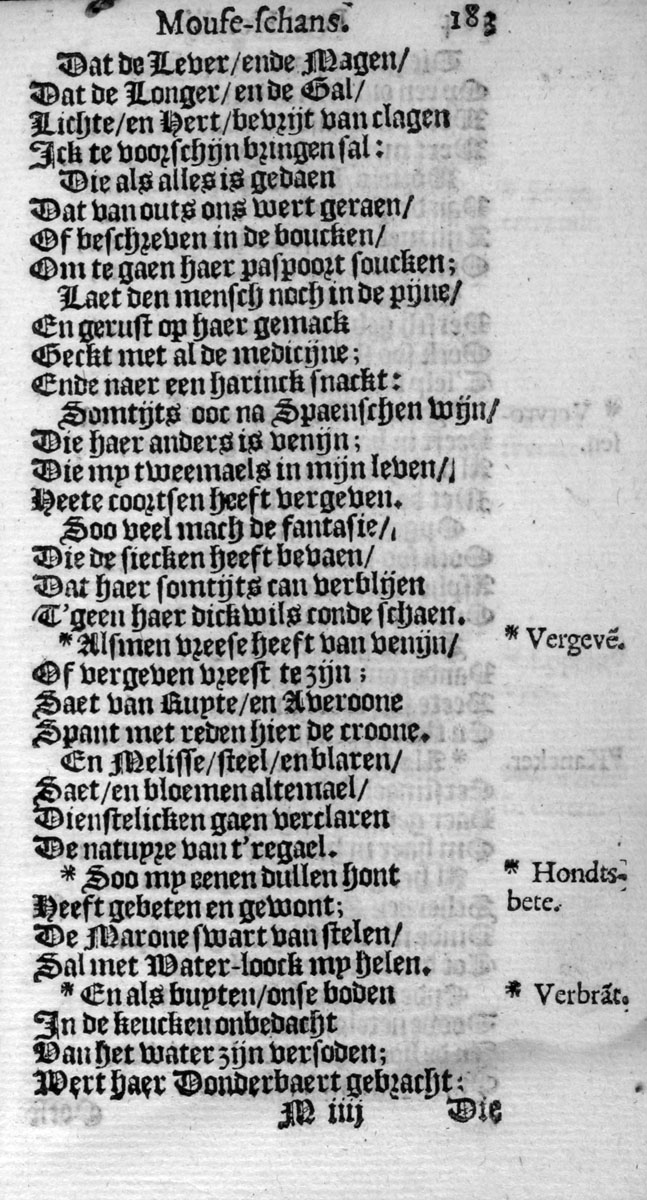 Mouse-schans. 183
Dat de Lever/ende Magen/
Dat de Longer/en de Gal/
Lichte/en Hert/bevrijt van clagen
Ick te voorschijn bringen sal:
Die als alles is gedaen
Dat van outs ons wert geraen/
Of beschreven in de boucken/
Om te gaen haer paspoort soucken;
Laet den mensch noch in de pijne/
En gerust op haer gemack
Geckt met al de medicijne;
Ende naer een harinck snackt:
Somtijts ooc na Spaenschen wijn/
Die haer anders is venijn;
Die my tweemaels in mijn leven/
Heete coortsen heeft vergeven.
Soo veel mach de fantasie/
Die de siecken heeft bevaen/
Dat haer somtijts can verblijen
T'geen haer dickwils conde schaen.
*Alsmen vreese heeft van venijn/ * Vergevẽ.
Of vergeven vreest te zijn;
Saet van Ruyte/en Averoone
Spant met reden hier de croone.
En Melisse/steel/en blaren/
Saet/en bloemen altemael/
Dienstelicken gaen verclaren
De natuyre van t'regael.
* Soo my eenen dullen hont * Hondts-
Heeft gebeten en gewont; bete.
De Marone swart van stelen/
Sal met Water-loock my helen.
* En als buyten/onse boden * Verbrãt.
In de keucken onbedacht
Van het water zijn versoden;
Wert haer Donderbaert gebracht:
M iiij Die